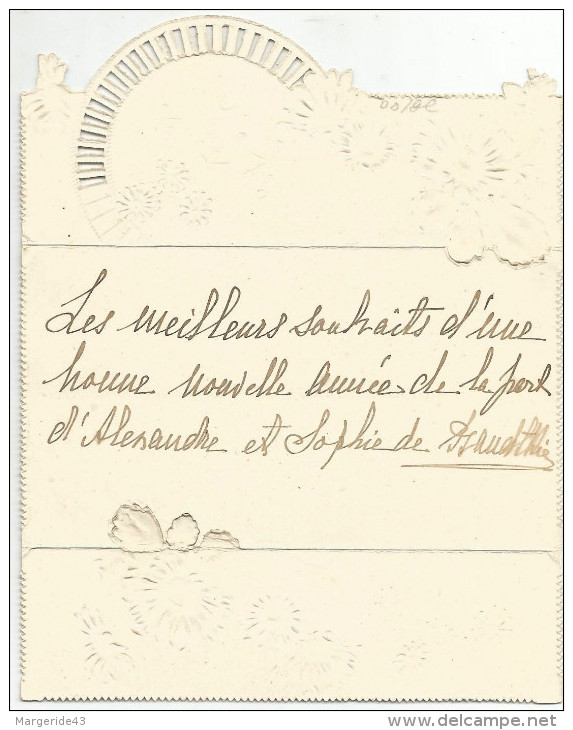 Les meilleurs souhaits d'une
bonne nouvelle année de la part
d'Alexandre et Sophie de
Margeride43
delcampe.net